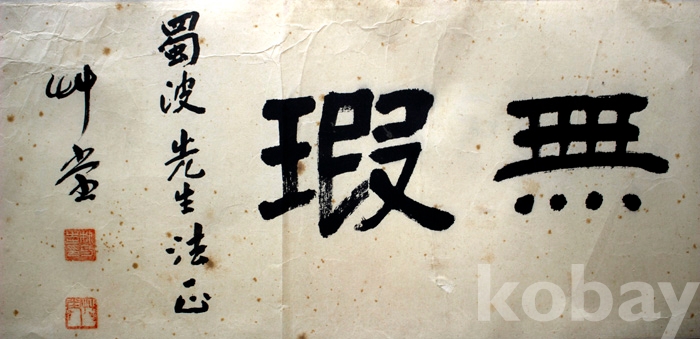 無瑕
蜀波先生法正
艸堂
kobay